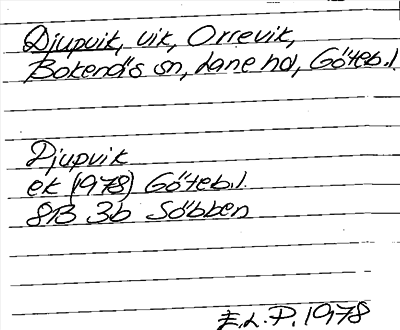 Djupvik, vik, Orrevik,
Bokenäs sn, Lane hd, Göteb.l.
Djupvik
ek (1978) Göteb.l.
8B 3b Söbben
E.L.P. 1978